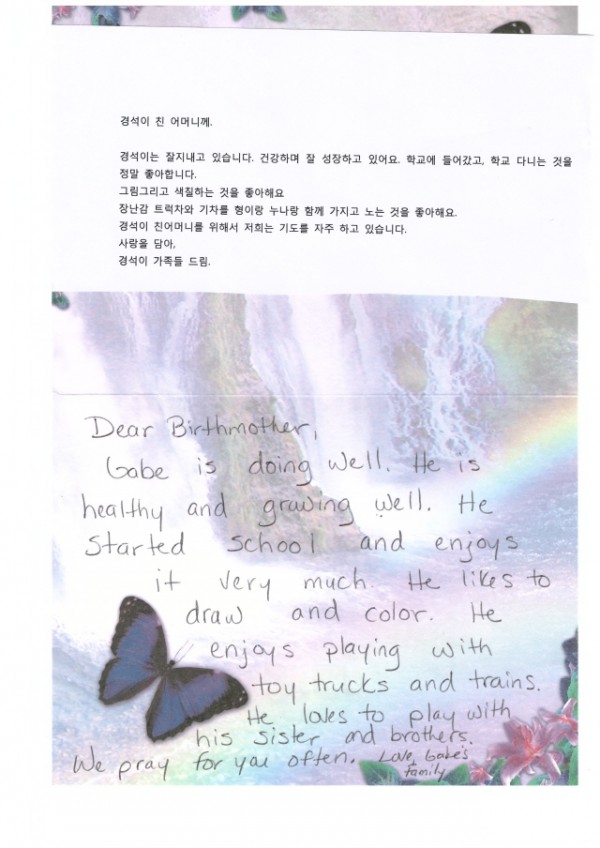 경석이 친 어머니께.
경석이는 잘지내고 있습니다. 건강하며 잘 성장하고 있어요. 학교에 들어갔고, 학교 다니는 것을
정말 좋아합니다.
그림그리고 색질하는 것을 좋아해요
장난감 트럭차와 기차를 형이랑 누나랑 함께 가지고 노는 것을 좋아해요.
경석이 친어머니를 위해서 저희는 기도를 자주 하고 있습니다.
사랑을 담아,
경석이 가족들 드림.
Dear Birthmother,
Gabe is doing well. He is
healthy and growing well. He
started school and enjoys
it very much. He likes to
draw and color. He
enjoys playing with
toy trucks and trains.
He loves to play with
his sister and brothers.
We pray for you often. Love, Gabe's
Family